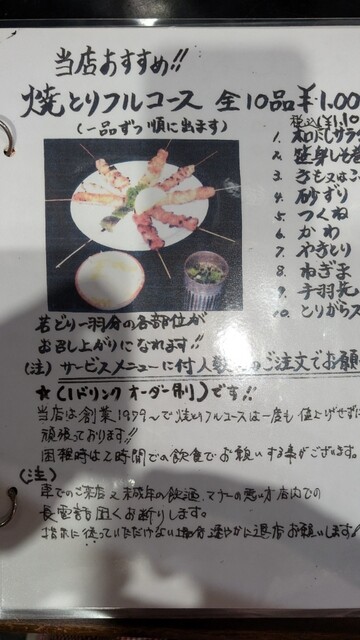 当店おすすめ!!
焼とりフルコース 全10品 ¥1.00
(一品ずつ順に出ます)
税込(¥1.10
1. 和だしサラ
2. 笹身しそ巻
3. きも又はこ
4. 砂ずり
5. つくね
6. かわ
7. やきとり
8. ねぎま
9. 手羽先
10. とりがらス
若どり一羽分の各部位が
お召し上がりになれます!!
(注) サービスメニューに付人数のご注文でお願
★(1ドリンクオーダー制)です!!
当店は創業1979〜で焼とりフルコースは一度も値上げせずに
頑張っております!!
困難時は2時間での飲食でお願いする事がございます。
(注)
車でのご来店又未成年の飲酒、マナーの悪い方店内での
長電話固くお断りします。
指示に従っていただけない場合速やかに退店お願いします!